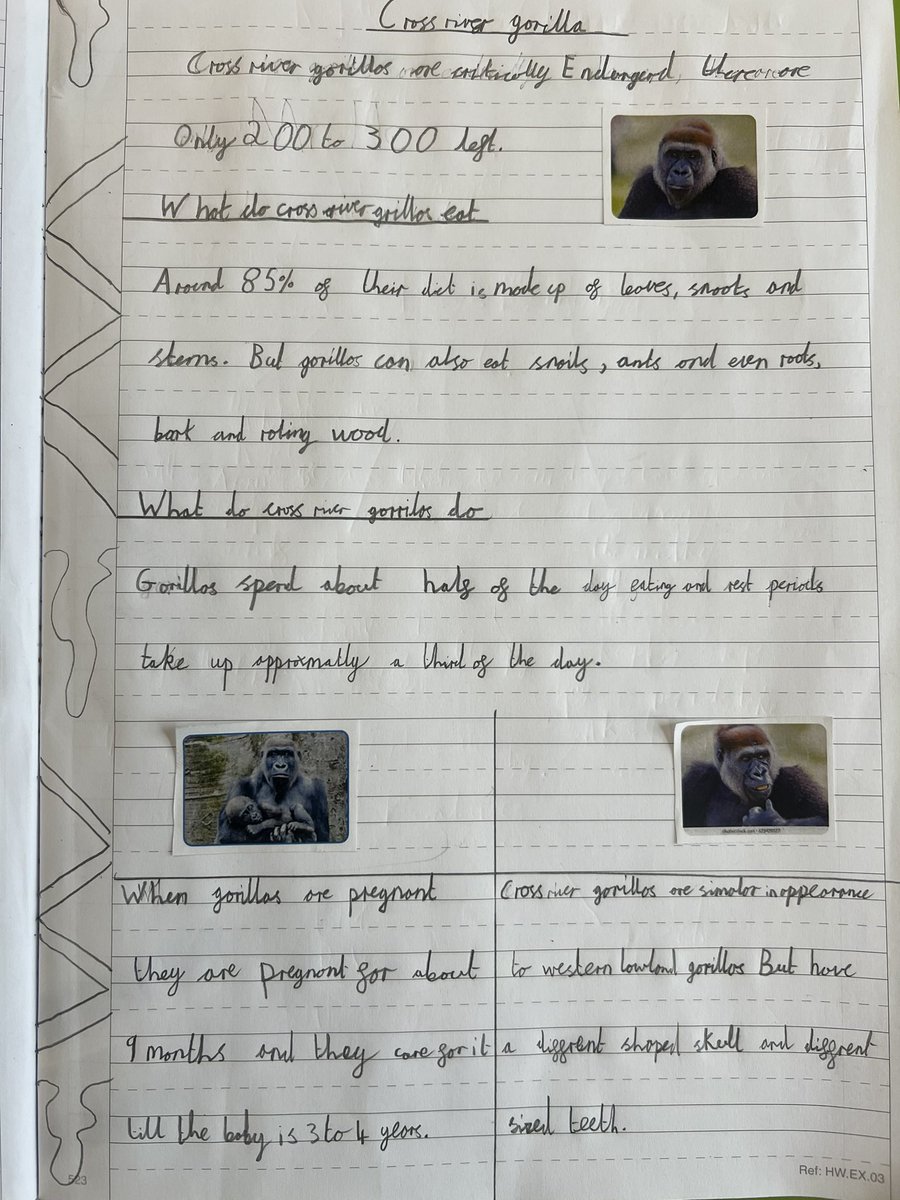 Cross river gorilla
Cross river gorillas are critically Endangerd, there are
Only 200 to 300 left.
What do cross river grillas eat
Around 85% of their diet is made up of leaves, snoots and
stems. But gorillas can also eat snails, ants and even roots,
bark and roting wood.
What do cross river gorrilas do
Gorillas spend about half of the day eating and rest periods
take up approxmatly a third of the day.
When gorillas are pregnant
they are pregnant for about
9 months and they care for it
till the baby is 3 to 4 years.
Cross river gorillas are simalar in appearance
to western lowland gorillas But have
a diffrent shaped skull and diffrent
sized teeth.
523
Ref: HW.EX.03